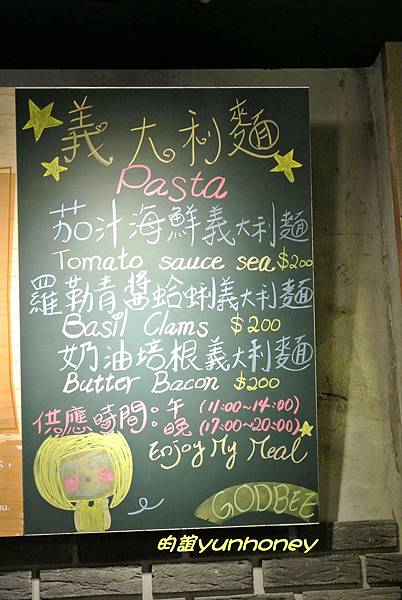 義大利麵
Pasta
茄汁海鮮義大利麵
Tomato sauce sea $200
羅勒青醬蛤蜊義大利麵
Basil Clams $200
奶油培根義大利麵
Butter Bacon $200
供應時間。午 (11:00~14:00)
晚 (17:00~20:00)
Enjoy My Meal
GODBEE
昀誼yunhoney